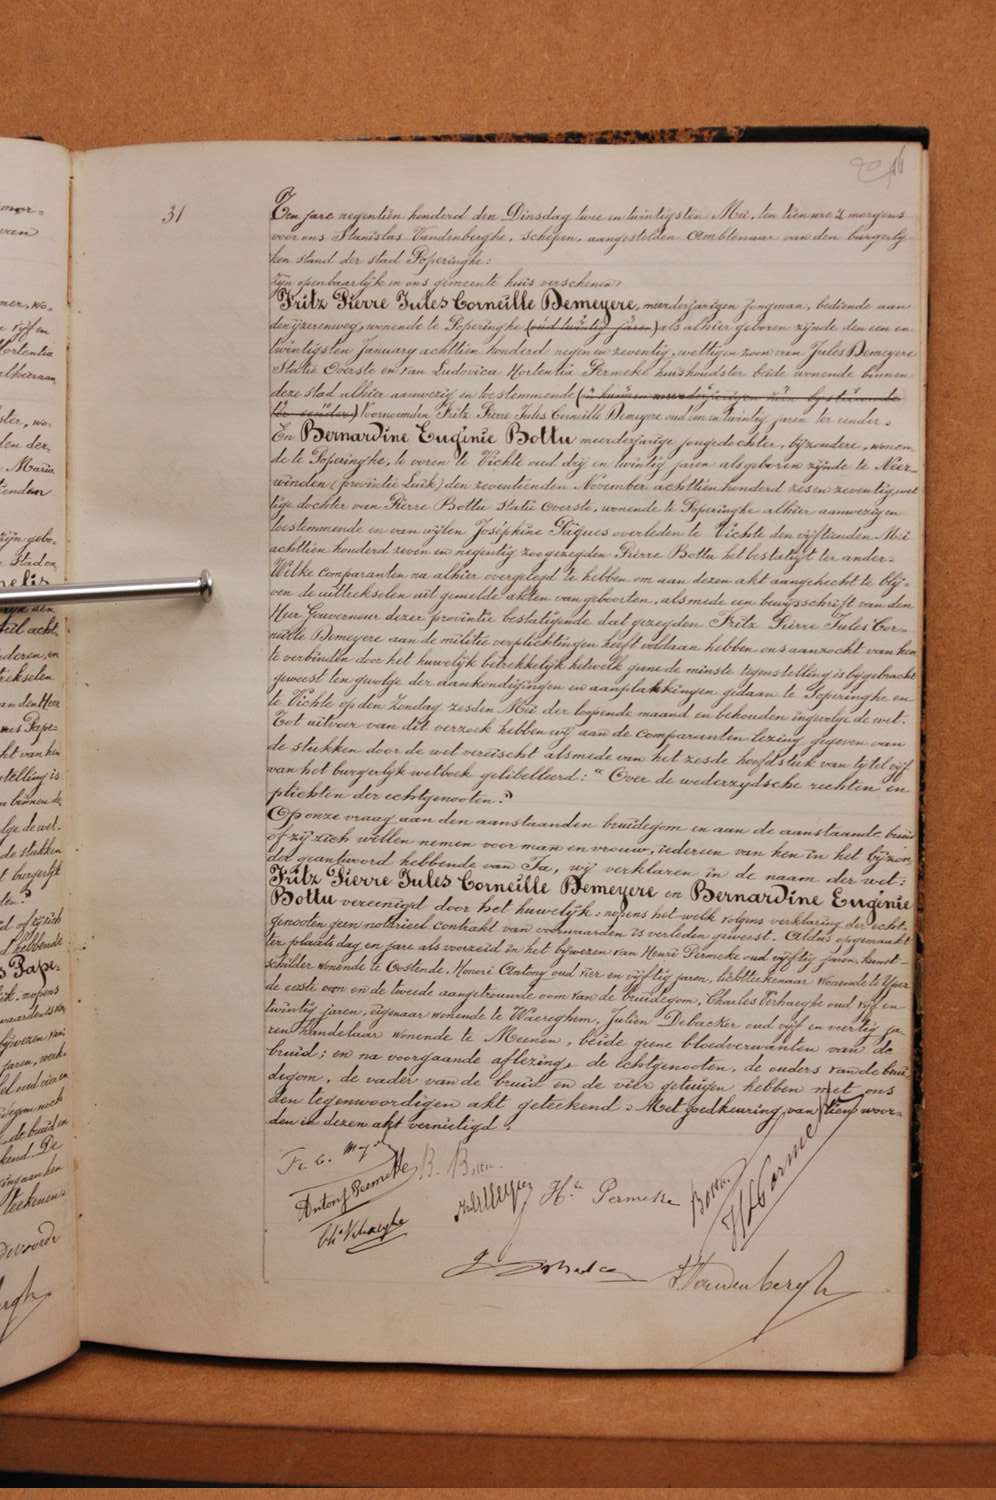 16
31
Ten jare negentien honderd den Dinsdag twee en twintigsten Mei, ten tien ure 's morgens
voor ons Stanislas Vandenberghe, schepen, aangestelden Ambtenaar van den burgerly-
ken stand der stad Poperinghe:
zijn openbaarlijk in ons gemeente huis verschenen:
Fritz Pierre Jules Corneille Demeyere, meerderjarigen jongman, bediende aan
den yzerenweg, wonende te Poperinghe (oud twintig jaren) als alhier geboren zijnde den een en
twintigsten January achttien honderd negen en zeventig, wettigen zoon van Jules Demeyere
Statie Overste en van Ludovica Hortentia Permeke huishoudster beide wonende binnen
deze stad alhier aanwezig en toestemmende
Voornoemden Fritz Pierre Jules Corneille Demeyere oud een en twintig jaren ter eender.
En Bernardine Eugénie Bottu meerderjarige jongedochter, byzondere, wonen-
de te Poperinghe, te voren te Vichte oud drij en twintig jaren als geboren zijnde te Neer-
winden (provintie Luik) den zeventienden November achttien honderd zes en zeventig, wet-
tige dochter van Pierre Bottu Statie Overste, wonende te Poperinghe alhier aanwezig en
toestemmende en van wijlen Joséphine Pâques overleden te Vichte den vijftienden Mei
achttien honderd zeven en negentig zoo gezegden Pierre Bottu het bestatigt ter ander.
Welke comparanten na alhier overgelegd te hebben om aan dezen akt aangehecht te blij-
ven de uittrekselen uit gemelde akten van geboorten, alsmede een bewijsschrift van den
Heer Gouverneur dezer provintie bestatigende dat gezegden Fritz Pierre Jules Cor-
neille Demeyere aan de militie verplichtingen heeft voldaan hebben ons aanzocht van hen
te verbinden door het huwelijk betrekkelijk hetwelk geene de minste tegenstelling is bijgebracht
geweest ten gevolge der aankondigingen en aanplakkingen gedaan te Poperinghe en
te Vichte op den Zondag zesden Mei der loopende maand en behouden ingevolge de wet.
Tot uitvoer van dit verzoek hebben wij aan de comparanten lezing gegeven van
de stukken door de wet vereischt alsmede van het zesde hoofdstuk van tytel vijf
van het burgerlyk wetboek gelibelleerd: "Over de wederzydsche rechten en
plichten der echtgenooten."
Op onze vraag aan den aanstaanden bruidegom en aan de aanstaande bruid
of zij zich willen nemen voor man en vrouw, iedereen van hen in het bijzon-
der geantwoord hebbende van Ja, wij verklaren in de naam der wet:
Fritz Pierre Jules Corneille Demeyere en Bernardine Eugénie
Bottu vereenigd door het huwelijk: nopens het welk volgens verklaring der echt-
genooten geen notarieel contrakt van voorwaarden is verleden geweest. Aldus opgemaakt
ter plaats dag en jare als voorzeid in het bijwezen van Henri Permeke oud vijftig jaren, kunst-
schilder wonende te Oostende, Honoré Antony oud vier en vijftig jaren, wonende te Yper
de eerste oom en de tweede aangetrouwde oom van de bruidegom, Charles Verhaeghe oud vijf en
twintig jaren, eigenaar wonende te Waereghem, Julien Debacker oud vijf en veertig ja-
ren handelaar wonende te Meenen, beide geene bloedverwanten van de
bruid; en na voorgaande aflezing, de echtgenooten, de ouders van de brui-
degom, de vader van de bruid en de vier getuigen hebben met ons
den tegenwoordigen akt geteekend. Met goedkeuring van tien woor-
den in dezen akt vernietigd.
B. Bottu
Antony Permeke
Ch. Verhaeghe
Hce Permeke
Bottu
J. Debacker
S. Vandenberghe